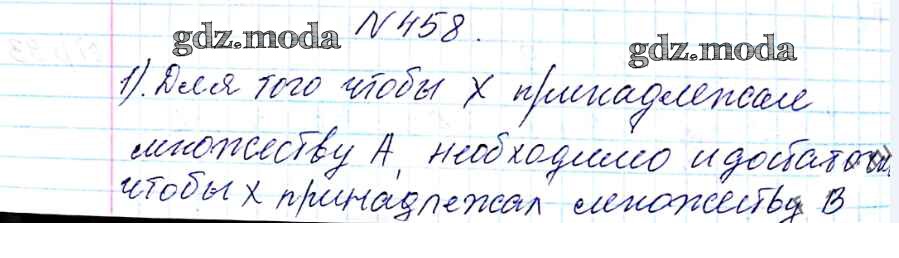 N458.
gdz.moda gdz.moda
1). Для того чтобы X принадлежал
множеству A, необходимо и достаточн
чтобы X принадлежал множеству B